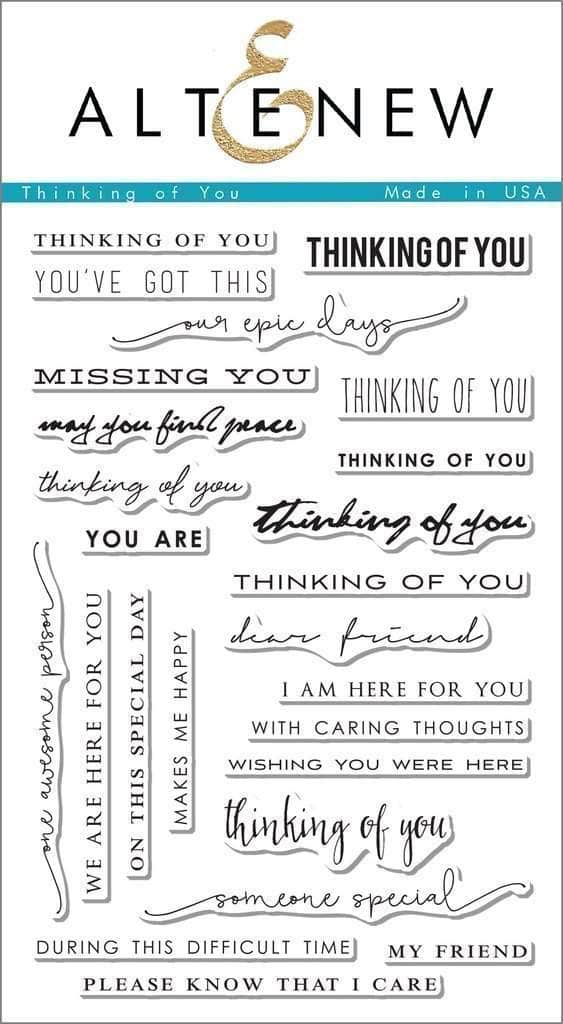 ALTENEW
Thinking of You Made in USA
THINKING OF YOU
THINKING OF YOU
YOU'VE GOT THIS
our epic days
MISSING YOU
THINKING OF YOU
may you find peace
THINKING OF YOU
thinking of you
thinking of you
YOU ARE
THINKING OF YOU
dear friend
one awesome person
WE ARE HERE FOR YOU
ON THIS SPECIAL DAY
MAKES ME HAPPY
I AM HERE FOR YOU
WITH CARING THOUGHTS
WISHING YOU WERE HERE
thinking of you
someone special
DURING THIS DIFFICULT TIME
MY FRIEND
PLEASE KNOW THAT I CARE